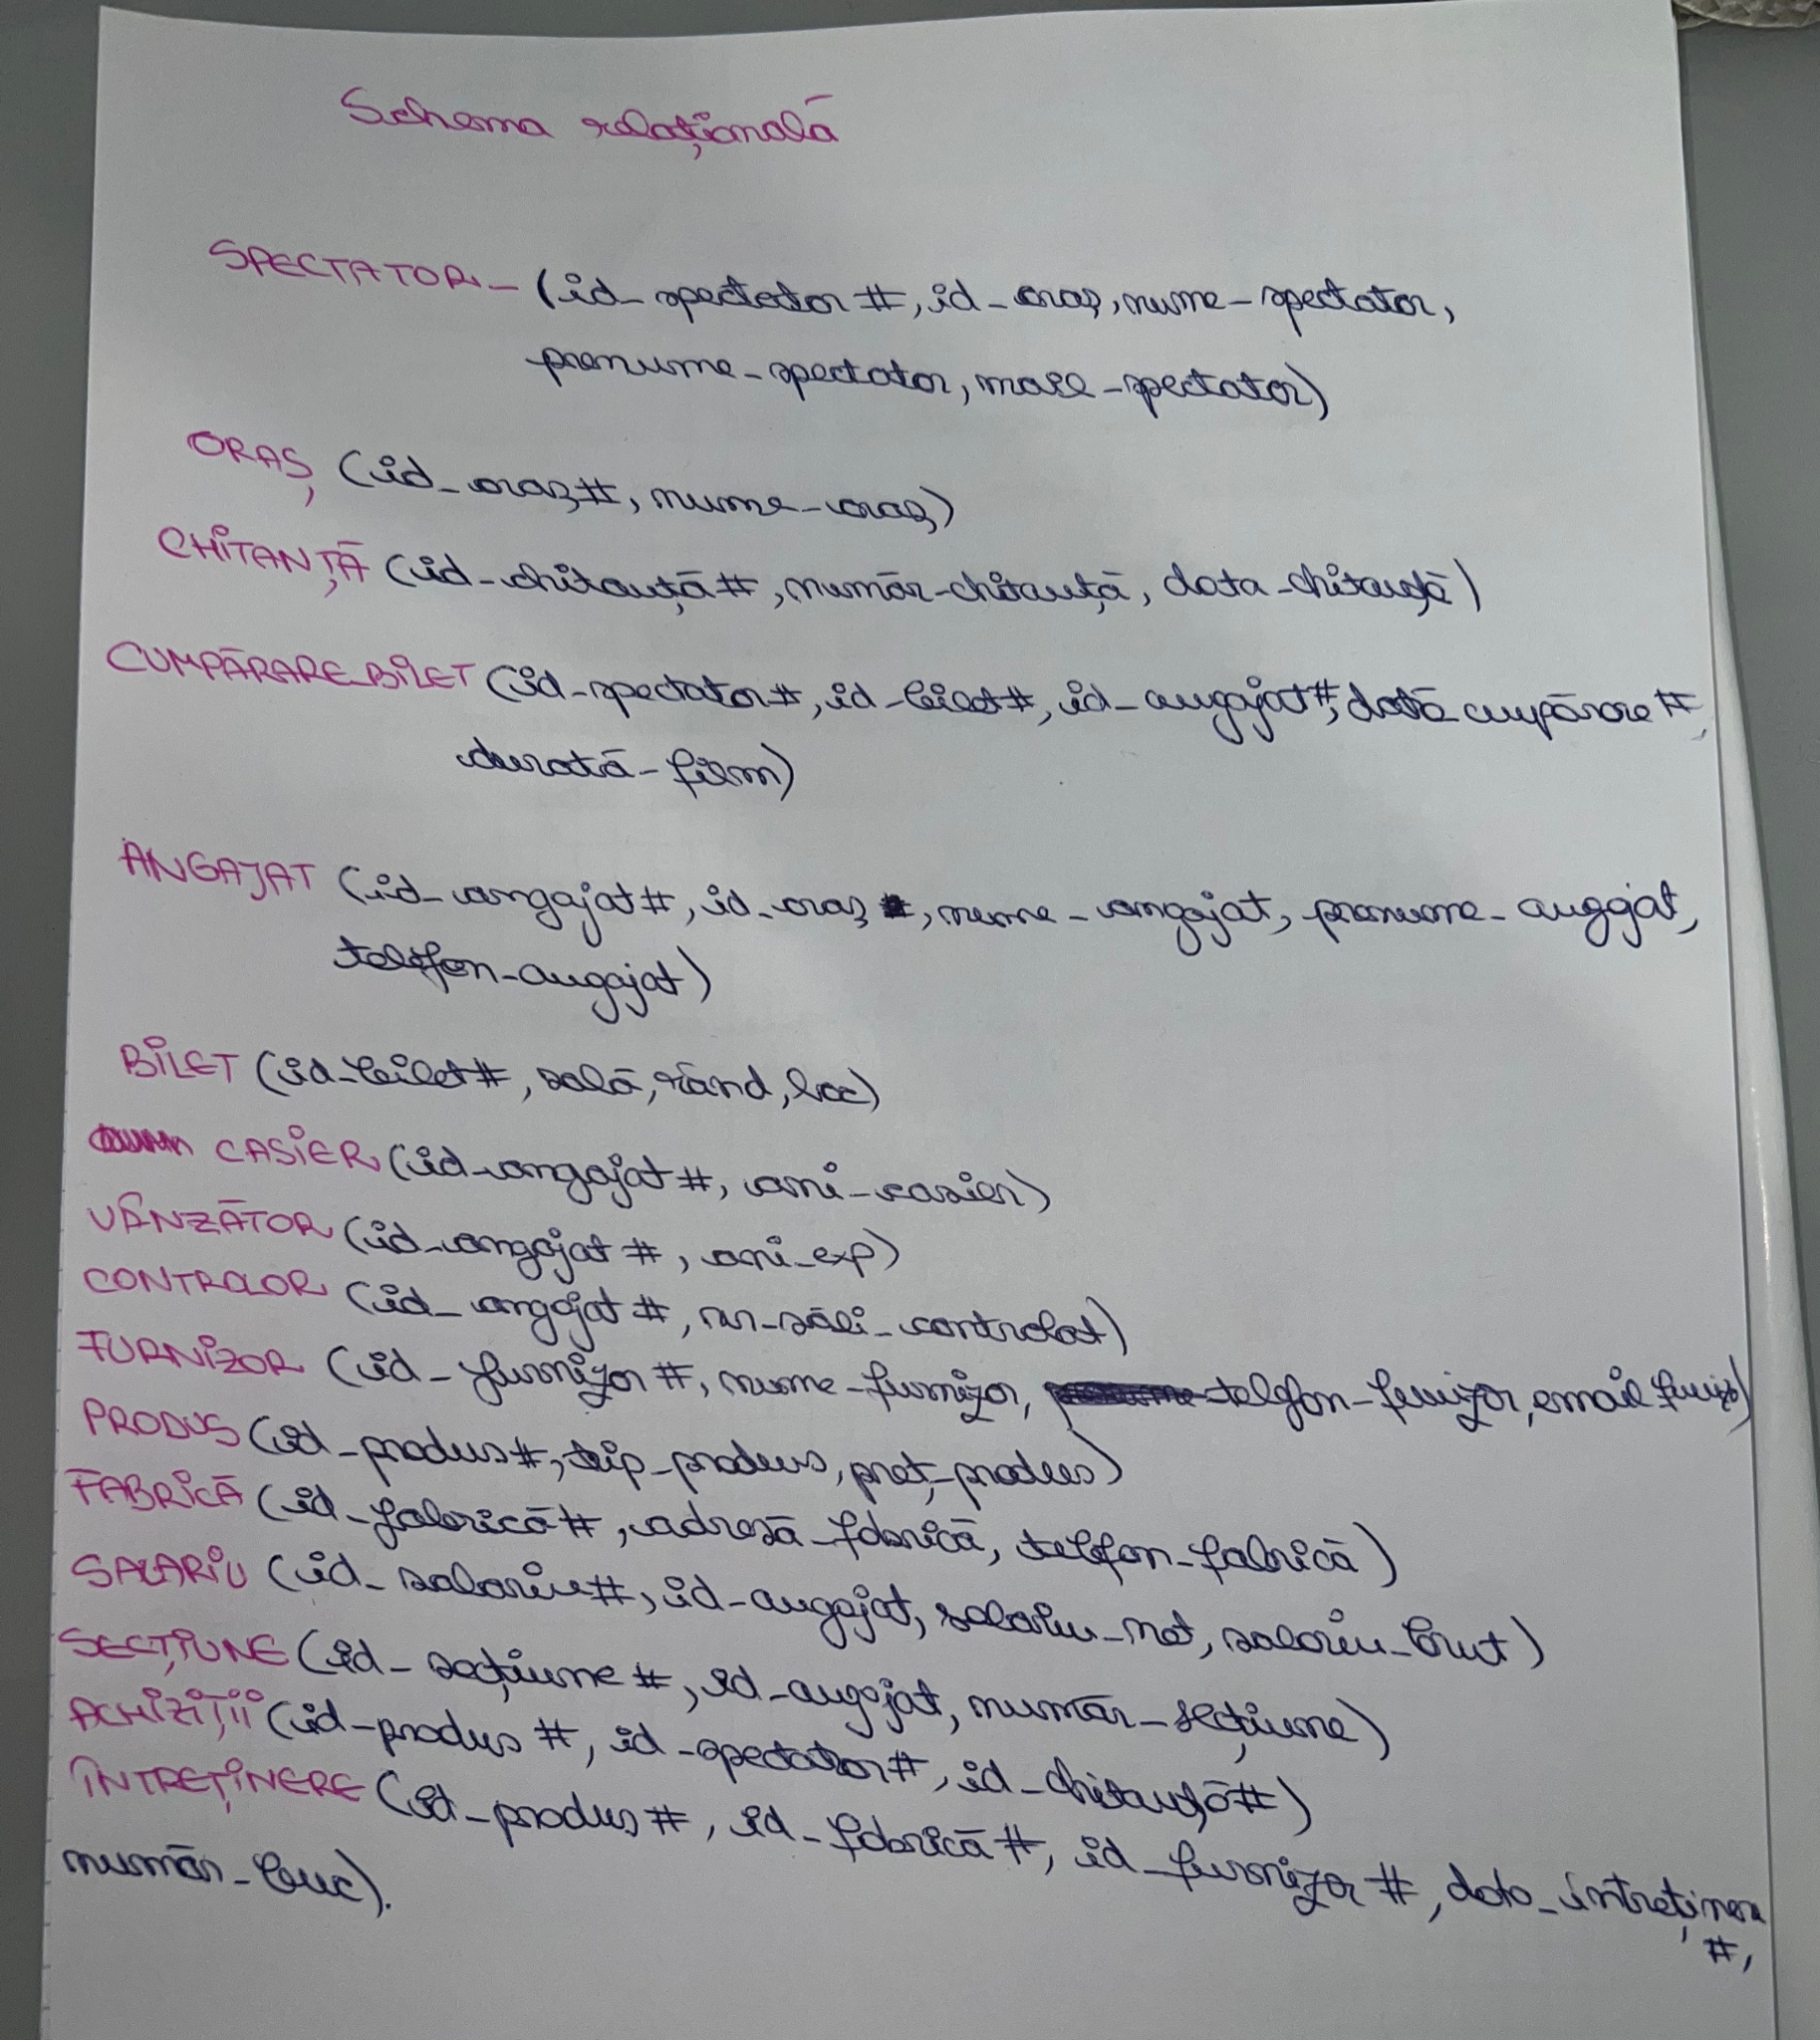 Schema relațională
SPECTATOR - (id_spectator #, id_oraș, nume_spectator,
prenume_spectator, mail_spectator)
ORAȘ (id_oraș#, nume_oraș)
CHITANȚĂ (id_chitanță #, număr_chitanță, data_chitanță)
CUMPĂRARE_BILET (id_spectator#, id_bilet#, id_angajat#, dată_cumpărare #,
durată_film)
ANGAJAT (id_angajat #, id_oraș, nume_angajat, prenume_angajat,
telefon_angajat)
BILET (id_bilet#, sală, rând, loc)
CASIER (id_angajat #, ani_casier)
VÂNZĂTOR (id_angajat #, ani_exp)
CONTROLOR (id_angajat #, nr_săli_controlat)
FURNIZOR (id_furnizor #, nume_furnizor, telefon_furnizor, email
PRODUS (id_produs#, tip_produs, preț_produs)
FABRICĂ (id_fabrică #, adresă_fabrică, telefon_fabrică)
SALARIU (id_salariu#, id_angajat, salariu_net, salariu_brut)
SECȚIUNE (id_secțiune #, id_angajat, număr_secțiune)
ACHIZIȚII (id_produs #, id_spectator#, id_chitanță#)
ÎNTREȚINERE (id_produs #, id_fabrică #, id_furnizor #, data_întreținere
#,
număr_buc).